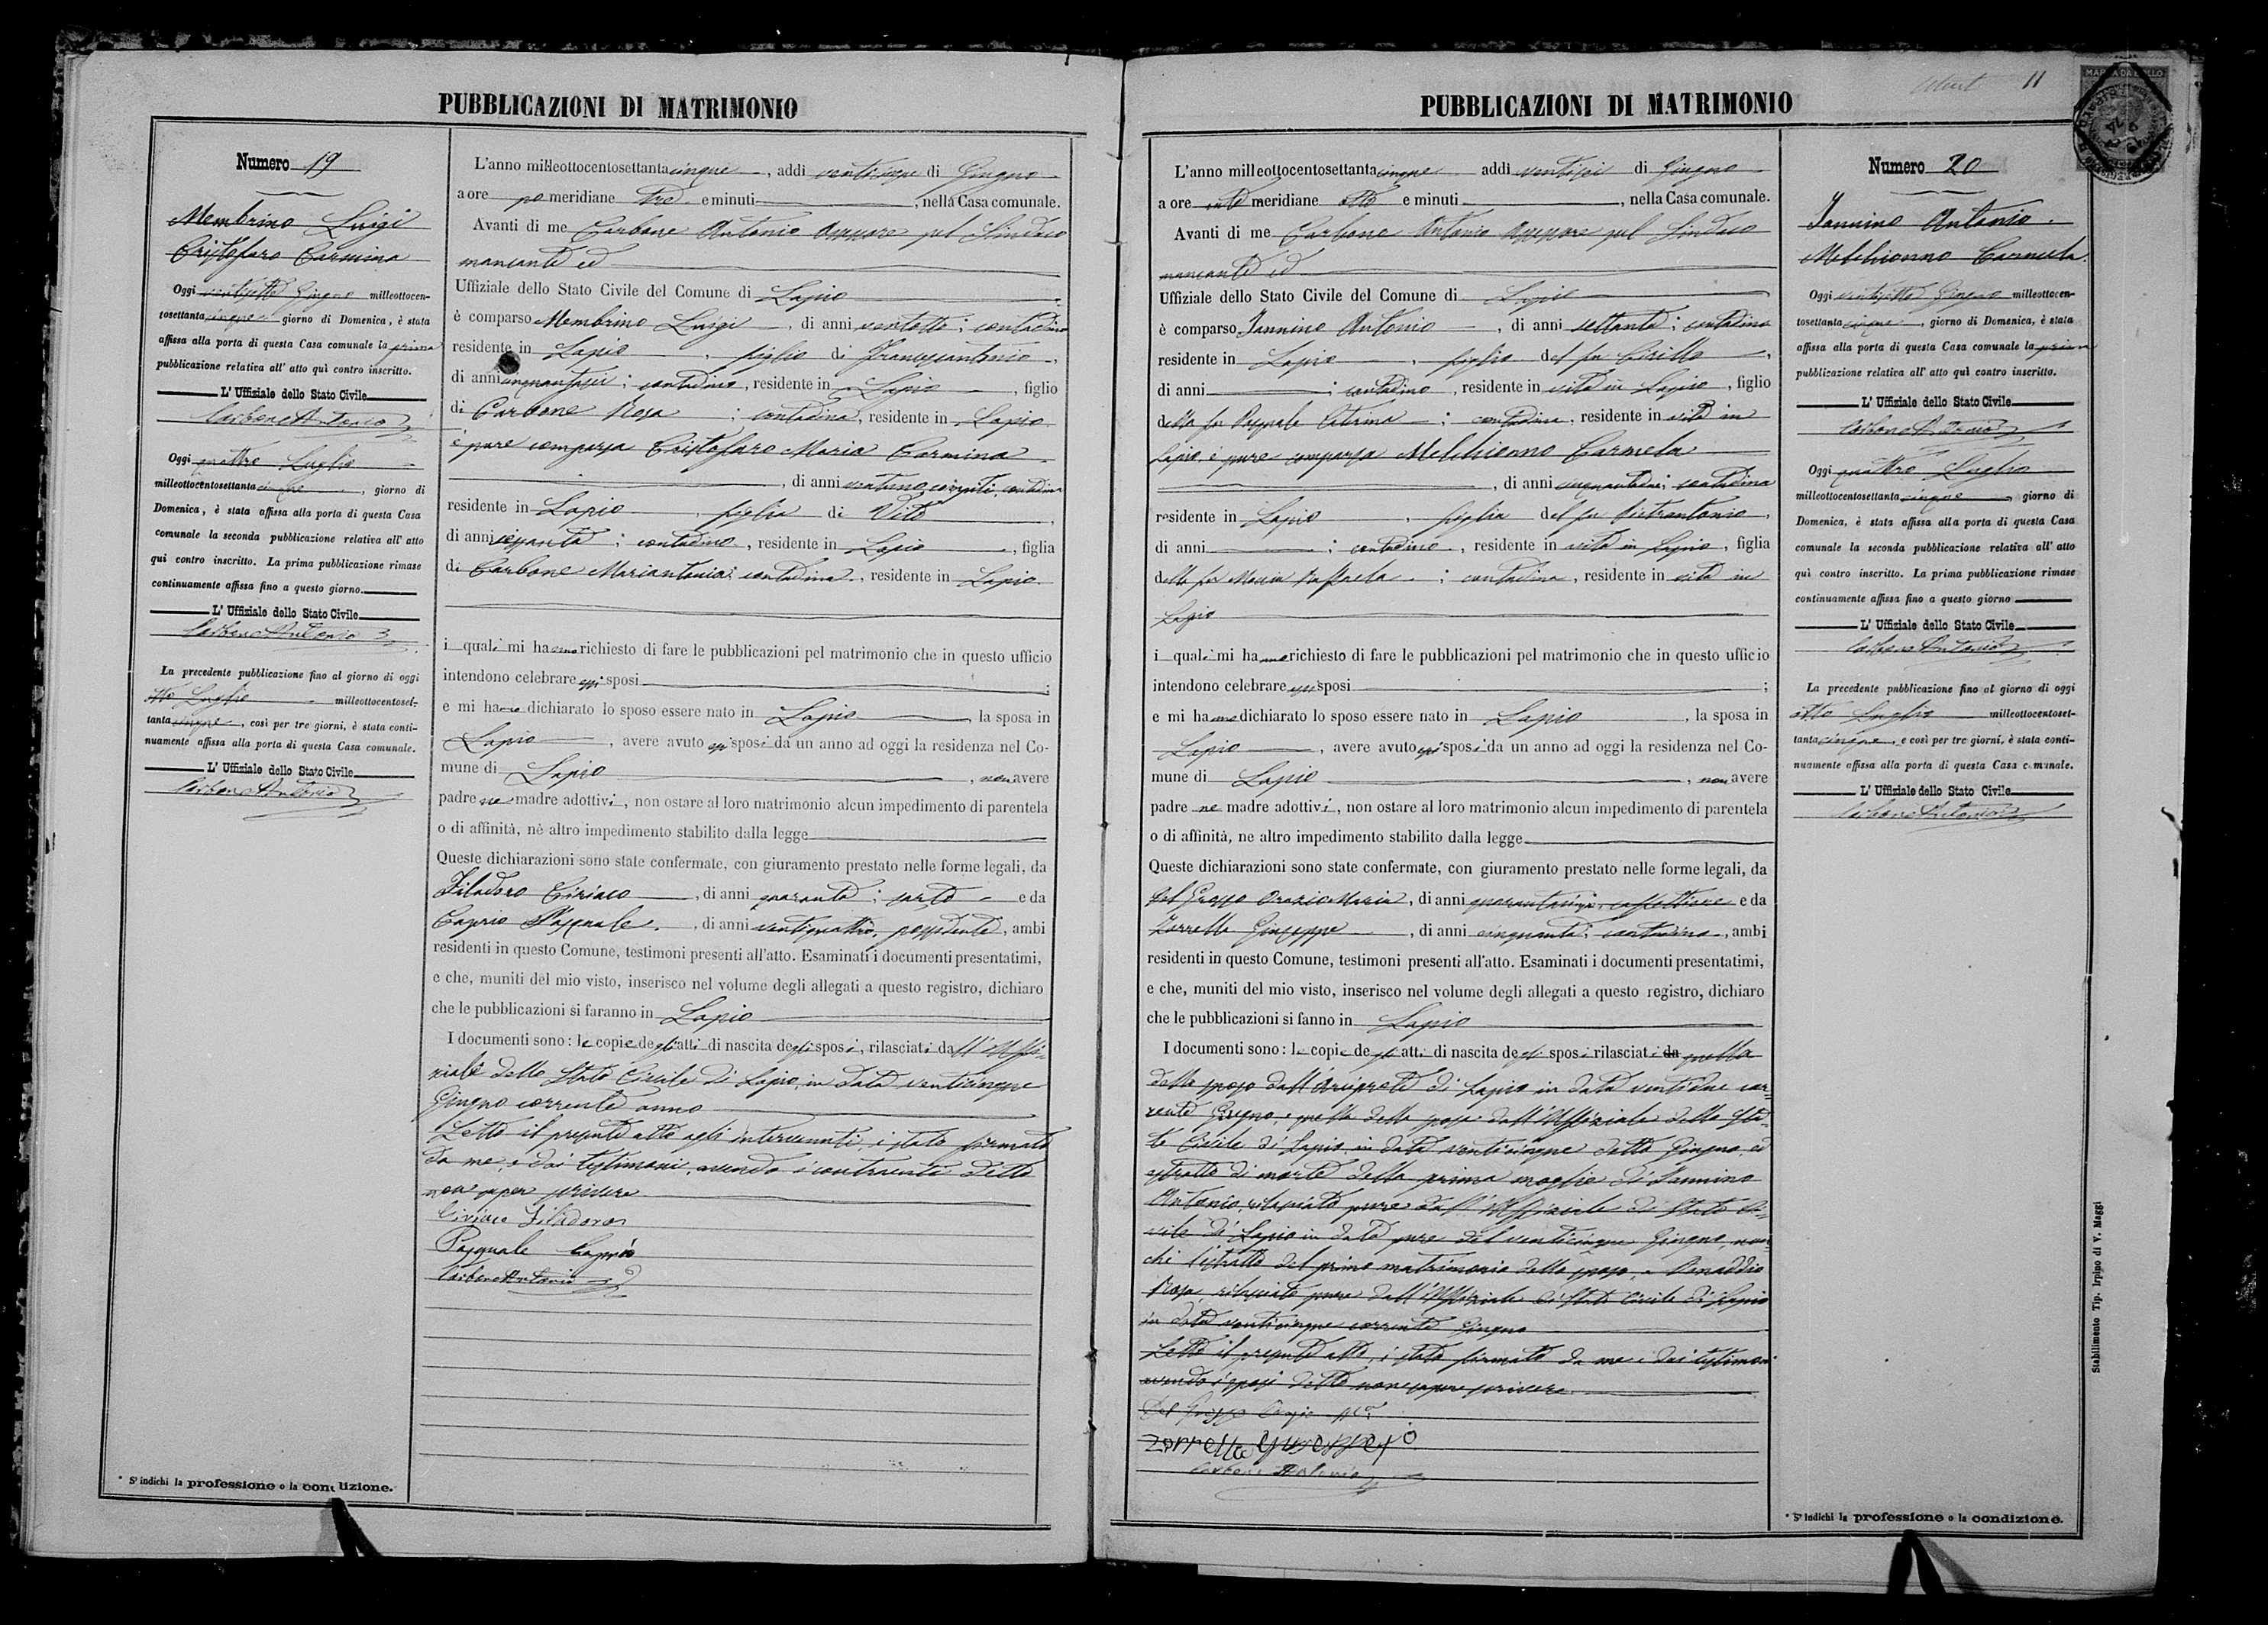 PUBBLICAZIONI DI MATRIMONIO
Numero 19
Membrino Luigi
Cristofaro Carmina
Oggi ventisette Giugno milleottocen-
tosettanta cinque giorno di Domenica, è stata
affissa alla porta di questa Casa comunale la prima
pubblicazione relativa all' atto quì contro inscritto.
L' Uffiziale dello Stato Civile
Carbone Antonio
Oggi quattro Luglio
milleottocentosettanta cinque, giorno di
Domenica, è stata affissa alla porta di questa Casa
comunale la seconda pubblicazione relativa all' atto
qui contro inscritto. La prima pubblicazione rimase
continuamente affissa fino a questo giorno.
L' Uffiziale dello Stato Civile
Carbone Antonio
La precedente pubblicazione fino al giorno di oggi
otto Luglio milleottocentoset-
tanta cinque, così per tre giorni, è stata conti-
nuamente affissa alla porta di questa Casa comunale.
L' Uffiziale dello Stato Civile
Carbone Antonio
* Si indichi la professione o la condizione.
L'anno milleottocentosettanta cinque, addì venticinque di Giugno
a ore po meridiane tre e minuti , nella Casa comunale.
Avanti di me Carbone Antonio Assessore pel Sindaco
mancante ed
Uffiziale dello Stato Civile del Comune di Lapio
è comparso Membrino Luigi, di anni ventotto; contadino
residente in Lapio, figlio di Francescantonio,
di anni cinquantasei; contadino, residente in Lapio, figlio
di Carbone Rosa; contadina, residente in Lapio
è pure comparsa Cristofaro Maria Carmina
, di anni ventuno compiti, contadina
residente in Lapio, figlia di Vito,
di anni sessanta; contadino, residente in Lapio, figlia
di Carbone Mariantonia; contadina, residente in Lapio
i quali mi hanno richiesto di fare le pubblicazioni pel matrimonio che in questo ufficio
intendono celebrare essi sposi ;
e mi hanno dichiarato lo sposo essere nato in Lapio, la sposa in
Lapio, avere avuto essi sposi da un anno ad oggi la residenza nel Co-
mune di Lapio, non avere
padre ne madre adottivi, non ostare al loro matrimonio alcun impedimento di parentela
o di affinità, nè altro impedimento stabilito dalla legge
Queste dichiarazioni sono state confermate, con giuramento prestato nelle forme legali, da
Filadoro Ciriaco, di anni quaranta; sarto e da
Caprio Pasquale, di anni ventiquattro, possidente, ambi
residenti in questo Comune, testimoni presenti all'atto. Esaminati i documenti presentatimi,
e che, muniti del mio visto, inserisco nel volume degli allegati a questo registro, dichiaro
che le pubblicazioni si faranno in Lapio
I documenti sono: le copie degli atti di nascita degli sposi, rilasciati dall'Uffi-
ziale dello Stato Civile di Lapio in data venticinque
Giugno corrente anno
Letto il presente atto agli intervenuti, è stato firmato
da me, e dai testimoni, avendo i contraenti detto
non saper scrivere
Ciriaco Filadoro
Pasquale Caprio
Carbone Antonio
PUBBLICAZIONI DI MATRIMONIO
11
MARCA DA BOLLO
L'anno milleottocentosettanta cinque addì ventisei di Giugno
a ore ante meridiane otto e minuti , nella Casa comunale.
Avanti di me Carbone Antonio Assessore pel Sindaco
mancante ed
Uffiziale dello Stato Civile del Comune di Lapio
è comparso Iannino Antonio, di anni settanta; contadino
residente in Lapio, figlio del fu Cirillo,
di anni ; contadino, residente in vita in Lapio, figlio
della fu Pasquale Caterina; contadina, residente in vita in
Lapio, è pure comparsa Melchionno Carmela
, di anni ; contadina
residente in Lapio, figlia del fu Pietrantonio,
di anni ; contadino, residente in vita in Lapio, figlia
della fu Maria Raffaela; contadina, residente in vita in
Lapio
i quali mi hanno richiesto di fare le pubblicazioni pel matrimonio che in questo ufficio
intendono celebrare essi sposi ;
e mi hanno dichiarato lo sposo essere nato in Lapio, la sposa in
Lapio, avere avuto essi sposi da un anno ad oggi la residenza nel Co-
mune di Lapio, non avere
padre ne madre adottivi, non ostare al loro matrimonio alcun impedimento di parentela
o di affinità, ne altro impedimento stabilito dalla legge
Queste dichiarazioni sono state confermate, con giuramento prestato nelle forme legali, da
Del Grosso Orazio Maria, di anni quarantacinque, caffettiere e da
Zorrella Giuseppe, di anni cinquanta; contadino, ambi
residenti in questo Comune, testimoni presenti all'atto. Esaminati i documenti presentatimi,
e che, muniti del mio visto, inserisco nel volume degli allegati a questo registro, dichiaro
che le pubblicazioni si fanno in Lapio
I documenti sono: le copie degli atti di nascita degli sposi rilasciati da quella
dello sposo dall'Arciprete di Lapio in data ventidue cor-
rente Giugno, e quella della sposa dall'Uffiziale dello Sta-
to Civile di Lapio, in data venticinque detto Giugno, ed
estratto di morte della prima moglie di Iannino
Antonio, rilasciato pure dall'Uffiziale di Stato Ci-
vile di Lapio in data pure del venticinque Giugno, non-
chè l'estratto del primo matrimonio dello sposo, a Renaddio
Rosa, rilasciato pure dall'Uffiziale di Stato Civile di Lapio
in data venticinque corrente Giugno
Letto il presente atto, è stato firmato da me e dai testimoni
avendo i sposi detto non sapere scrivere
Del Grosso Orazio Ma
Zorrella Giuseppe
Carbone Antonio
Numero 20
Iannino Antonio
Melchionno Carmela
Oggi ventisette Giugno milleottocen-
tosettanta cinque, giorno di Domenica, è stata
affissa alla porta di questa Casa comunale la prima
pubblicazione relativa all' atto quì contro inscritto.
L' Uffiziale dello Stato Civile
Carbone Antonio
Oggi quattro Luglio
milleottocentosettanta cinque, giorno di
Domenica, è stata affissa alla porta di questa Casa
comunale la seconda pubblicazione relativa all' atto
quì contro inscritto. La prima pubblicazione rimase
continuamente affissa fino a questo giorno
L' Uffiziale dello Stato Civile
Carbone Antonio
La precedente pubblicazione fino al giorno di oggi
otto Luglio milleottocentoset-
tanta cinque, e così per tre giorni, è stata conti-
nuamente affissa alla porta di questa Casa comunale.
L' Uffiziale dello Stato Civile
Carbone Antonio
* Si indichi la professione o la condizione.
Stabilimento Tip. Irpino di V. Maggi